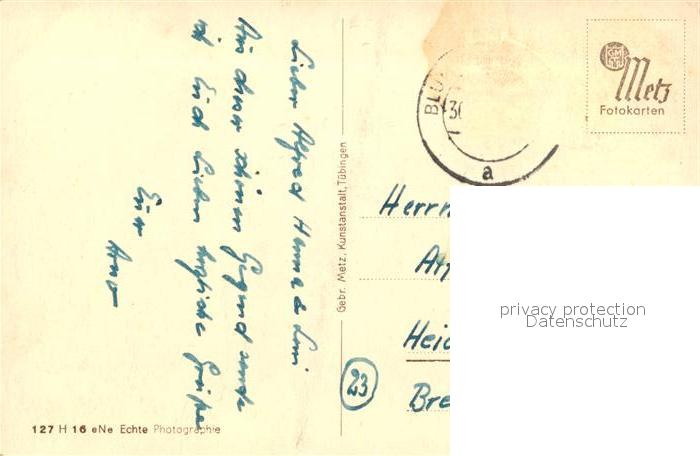 Lieber Alfred Hanna & Lini
Aus dieser schönen Gegend sende
ich Euch Lieben herzliche Grüße
Euer
Arno
Gebr. Metz, Kunstanstalt, Tübingen
127 H 16 eNe Echte Photographie
BLU
30
a
GMT
Metz
Fotokarten
Herrn
Heid
23
Bre
privacy protection
Datenschutz